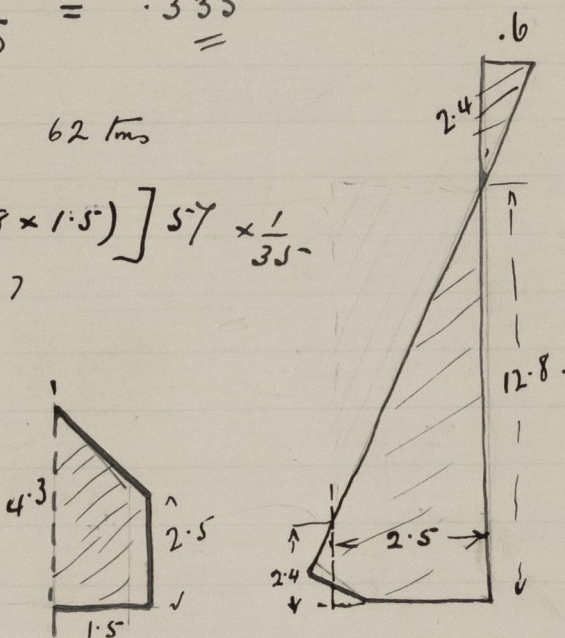 5 = .335
.6
2.4
62 Tons
8 × 1.5) ] 57 × 1/35
12.8.
4.3
2.5
1.5
2.5
2.4